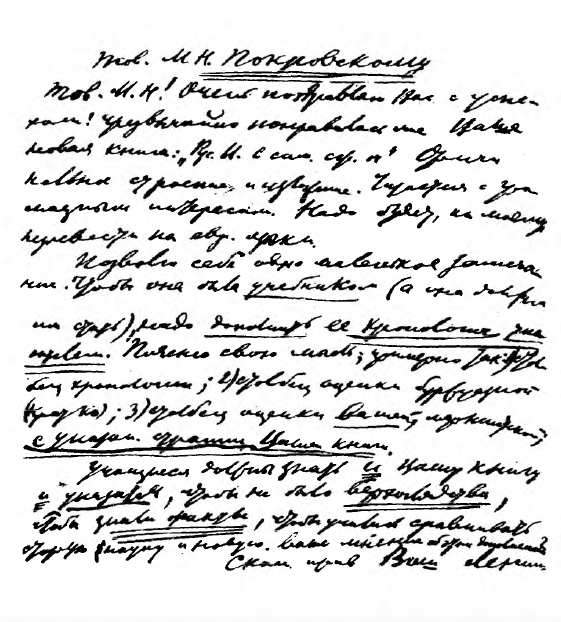 Тов. М. Н. Покровскому
Тов. М. Н.! Очень поздравляю Вас с успе-
хом! Чрезвычайно понравилась мне Ваша
новая книга: „Рус. И. в сам. сж. оч.“ Ориги-
нальное строение и изложение. Читается с гро
мадным интересом. Надо будет, по-моему,
перевести на евр. языки.
Позволю себе одно маленькое замеча
ние. Чтобы она была учебником (а она должна
им стать), надо дополнить ее хронологич. ука
зателем. Поясню свою мысль; примерно так: 1) стол
бец хронологии; 2) столбец оценки буржуазной
(кратко); 3) столбец оценки Вашей, марксистской;
с указан. страниц Вашей книги.
Учащиеся должны знать и Вашу книгу
и указатель, чтобы не было верхоглядства,
чтобы знали факты, чтобы учились сравнивать
старую науку и новую. Ваше мнение об этом дополнении?
С ком. прив. Ваш Ленин